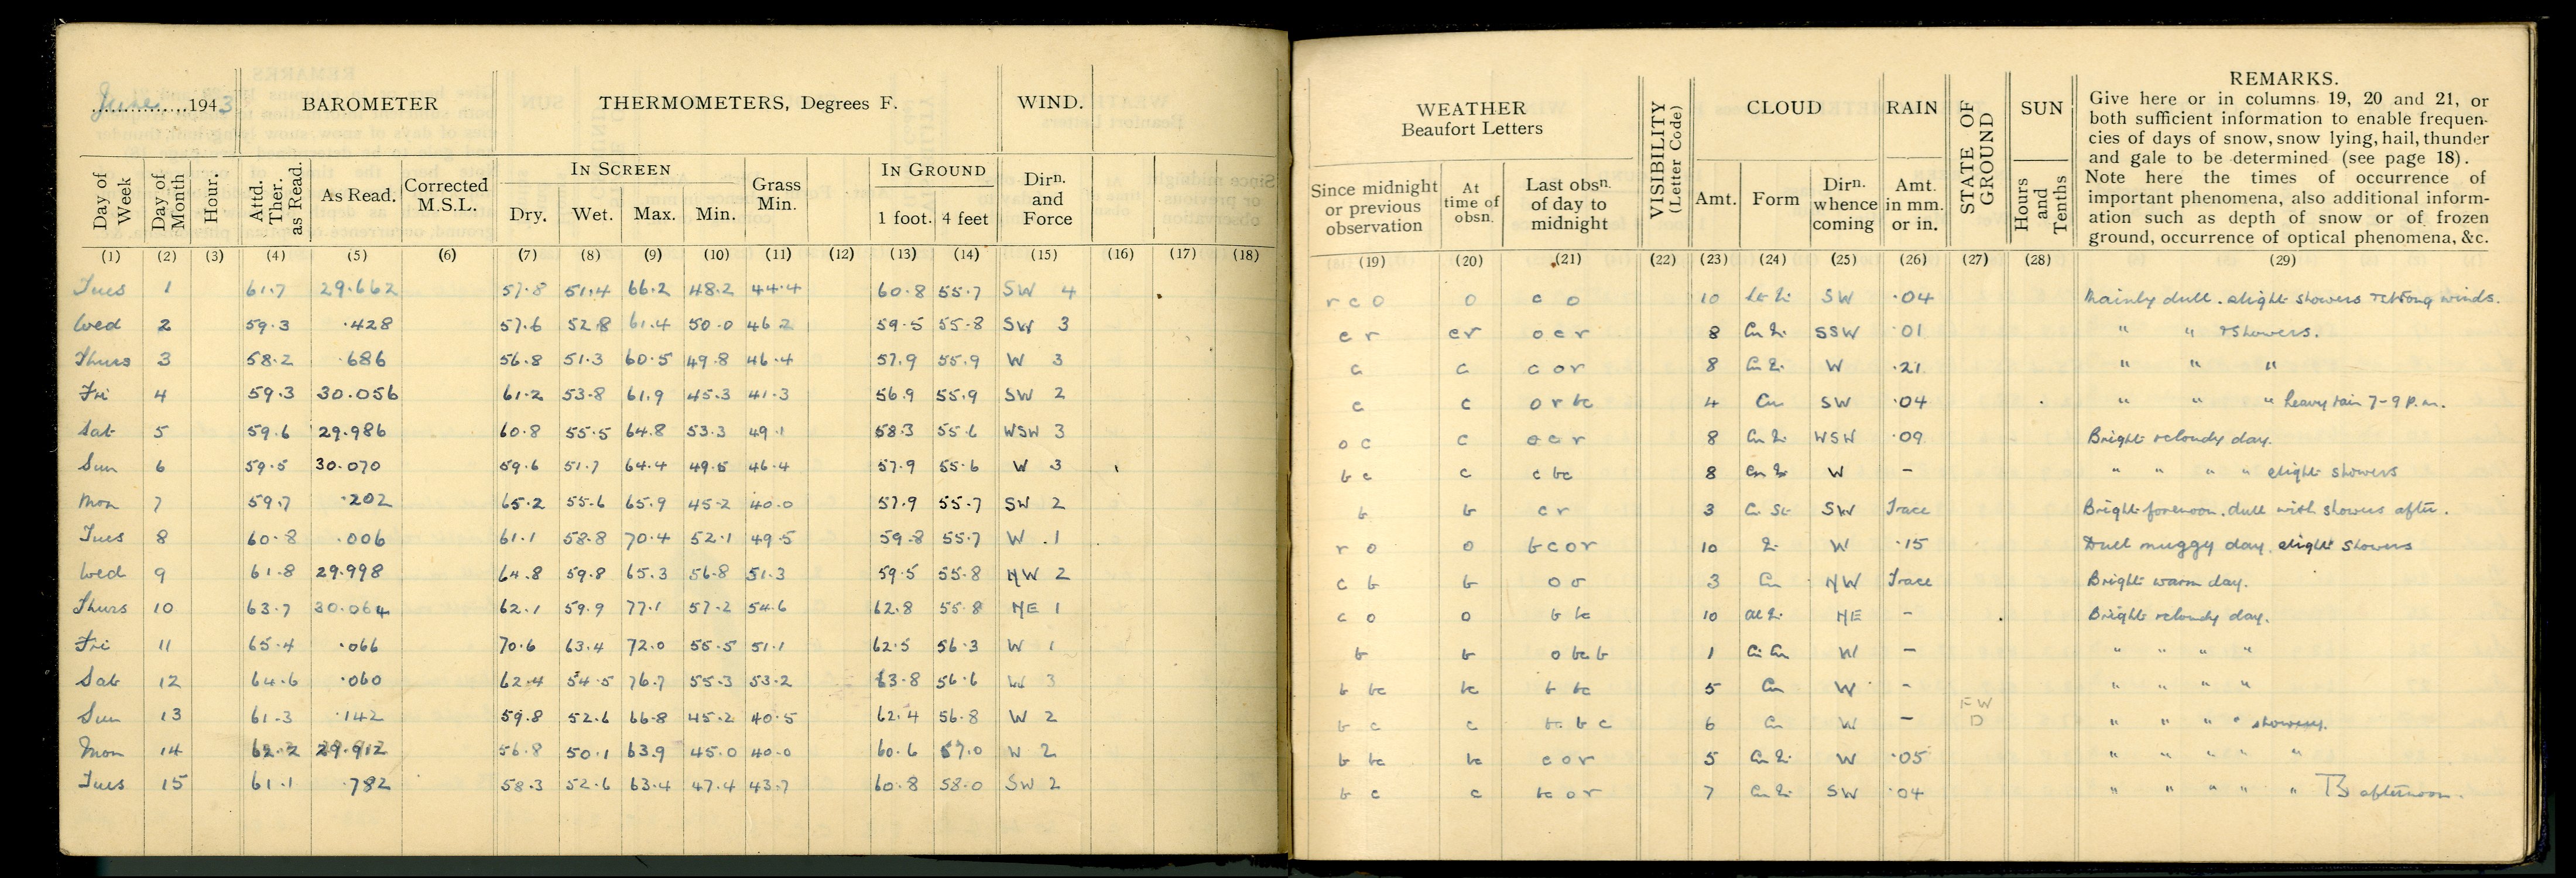 June 1943 BAROMETER THERMOMETERS, Degrees F. WIND.
Day of Week Day of Month Hour. Attd. Ther. as Read. As Read. Corrected M.S.L. IN SCREEN Dry. Wet. Max. Min. Grass Min. IN GROUND 1 foot. 4 feet Dirn. and Force
(1) (2) (3) (4) (5) (6) (7) (8) (9) (10) (11) (12) (13) (14) (15) (16) (17) (18)
Tues 1 61.7 29.662 57.8 51.4 66.2 48.2 44.4 60.8 55.7 SW 4
Wed 2 59.3 .428 57.6 52.8 61.4 50.0 46.2 59.5 55.8 SW 3
Thurs 3 58.2 .686 56.8 51.3 60.5 49.8 46.4 57.9 55.9 W 3
Fri 4 59.3 30.056 61.2 53.8 61.9 45.3 41.3 56.9 55.9 SW 2
Sat 5 59.6 29.986 60.8 55.5 64.8 53.3 49.1 58.3 55.6 WSW 3
Sun 6 59.5 30.070 59.6 51.7 64.4 49.5 46.4 57.9 55.6 W 3
Mon 7 59.7 .202 65.2 55.6 65.9 45.2 40.0 57.9 55.7 SW 2
Tues 8 60.8 .006 61.1 58.8 70.4 52.1 49.5 59.8 55.7 W 1
Wed 9 61.8 29.998 64.8 59.8 65.3 56.8 51.3 59.5 55.8 NW 2
Thurs 10 63.7 30.064 62.1 59.9 77.1 57.2 54.6 62.8 55.8 NE 1
Fri 11 65.4 .066 70.6 63.4 72.0 55.5 51.1 62.5 56.3 W 1
Sat 12 64.6 .060 62.4 54.5 76.7 55.3 53.2 63.8 56.6 W 3
Sun 13 61.3 .142 59.8 52.6 66.8 45.2 40.5 62.4 56.8 W 2
Mon 14 62.2 29.912 56.8 50.1 63.9 45.0 40.0 60.6 57.0 W 2
Tues 15 61.1 .782 58.3 52.6 63.4 47.4 43.7 60.8 58.0 SW 2
WEATHER
Beaufort Letters
Since midnight or previous observation At time of obsn. Last obsn. of day to midnight VISIBILITY (Letter Code) CLOUD Amt. Form Dirn. whence coming RAIN Amt. in mm. or in. STATE OF GROUND SUN Hours and Tenths
REMARKS.
Give here or in columns 19, 20 and 21, or
both sufficient information to enable frequen-
cies of days of snow, snow lying, hail, thunder
and gale to be determined (see page 18).
Note here the times of occurrence of
important phenomena, also additional inform-
ation such as depth of snow or of frozen
ground, occurrence of optical phenomena, &c.
(19) (20) (21) (22) (23) (24) (25) (26) (27) (28) (29)
r c o o c o 10 SW .04 Mainly dull. slight showers & strong winds.
c r c r o c r 8 SSW .01 " " & showers.
c c c o r 8 W .21 " " "
c c o r bc 4 Cu SW .04 " " " heavy rain 7-9 p.m.
o c c o c r 8 WSW .09 Bright & cloudy day.
b c c c bc 8 W - " " " " slight showers
b b c r 3 SW Trace Bright forenoon. dull with showers after.
r o o b c o r 10 W .15 Dull muggy day. slight showers
c b b o o 3 Cu NW Trace Bright warm day.
c o o b bc 10 NE - Bright & cloudy day.
b b o bc b 1 Ci Cu W - " " " "
b bc bc b bc 5 Cu W - " " " "
b c c b c 6 Cu W - FW D " " " " showery.
b bc bc c o r 5 W .05 " " " " "
b c c bc o r 7 SW .04 " " " " " afternoon.